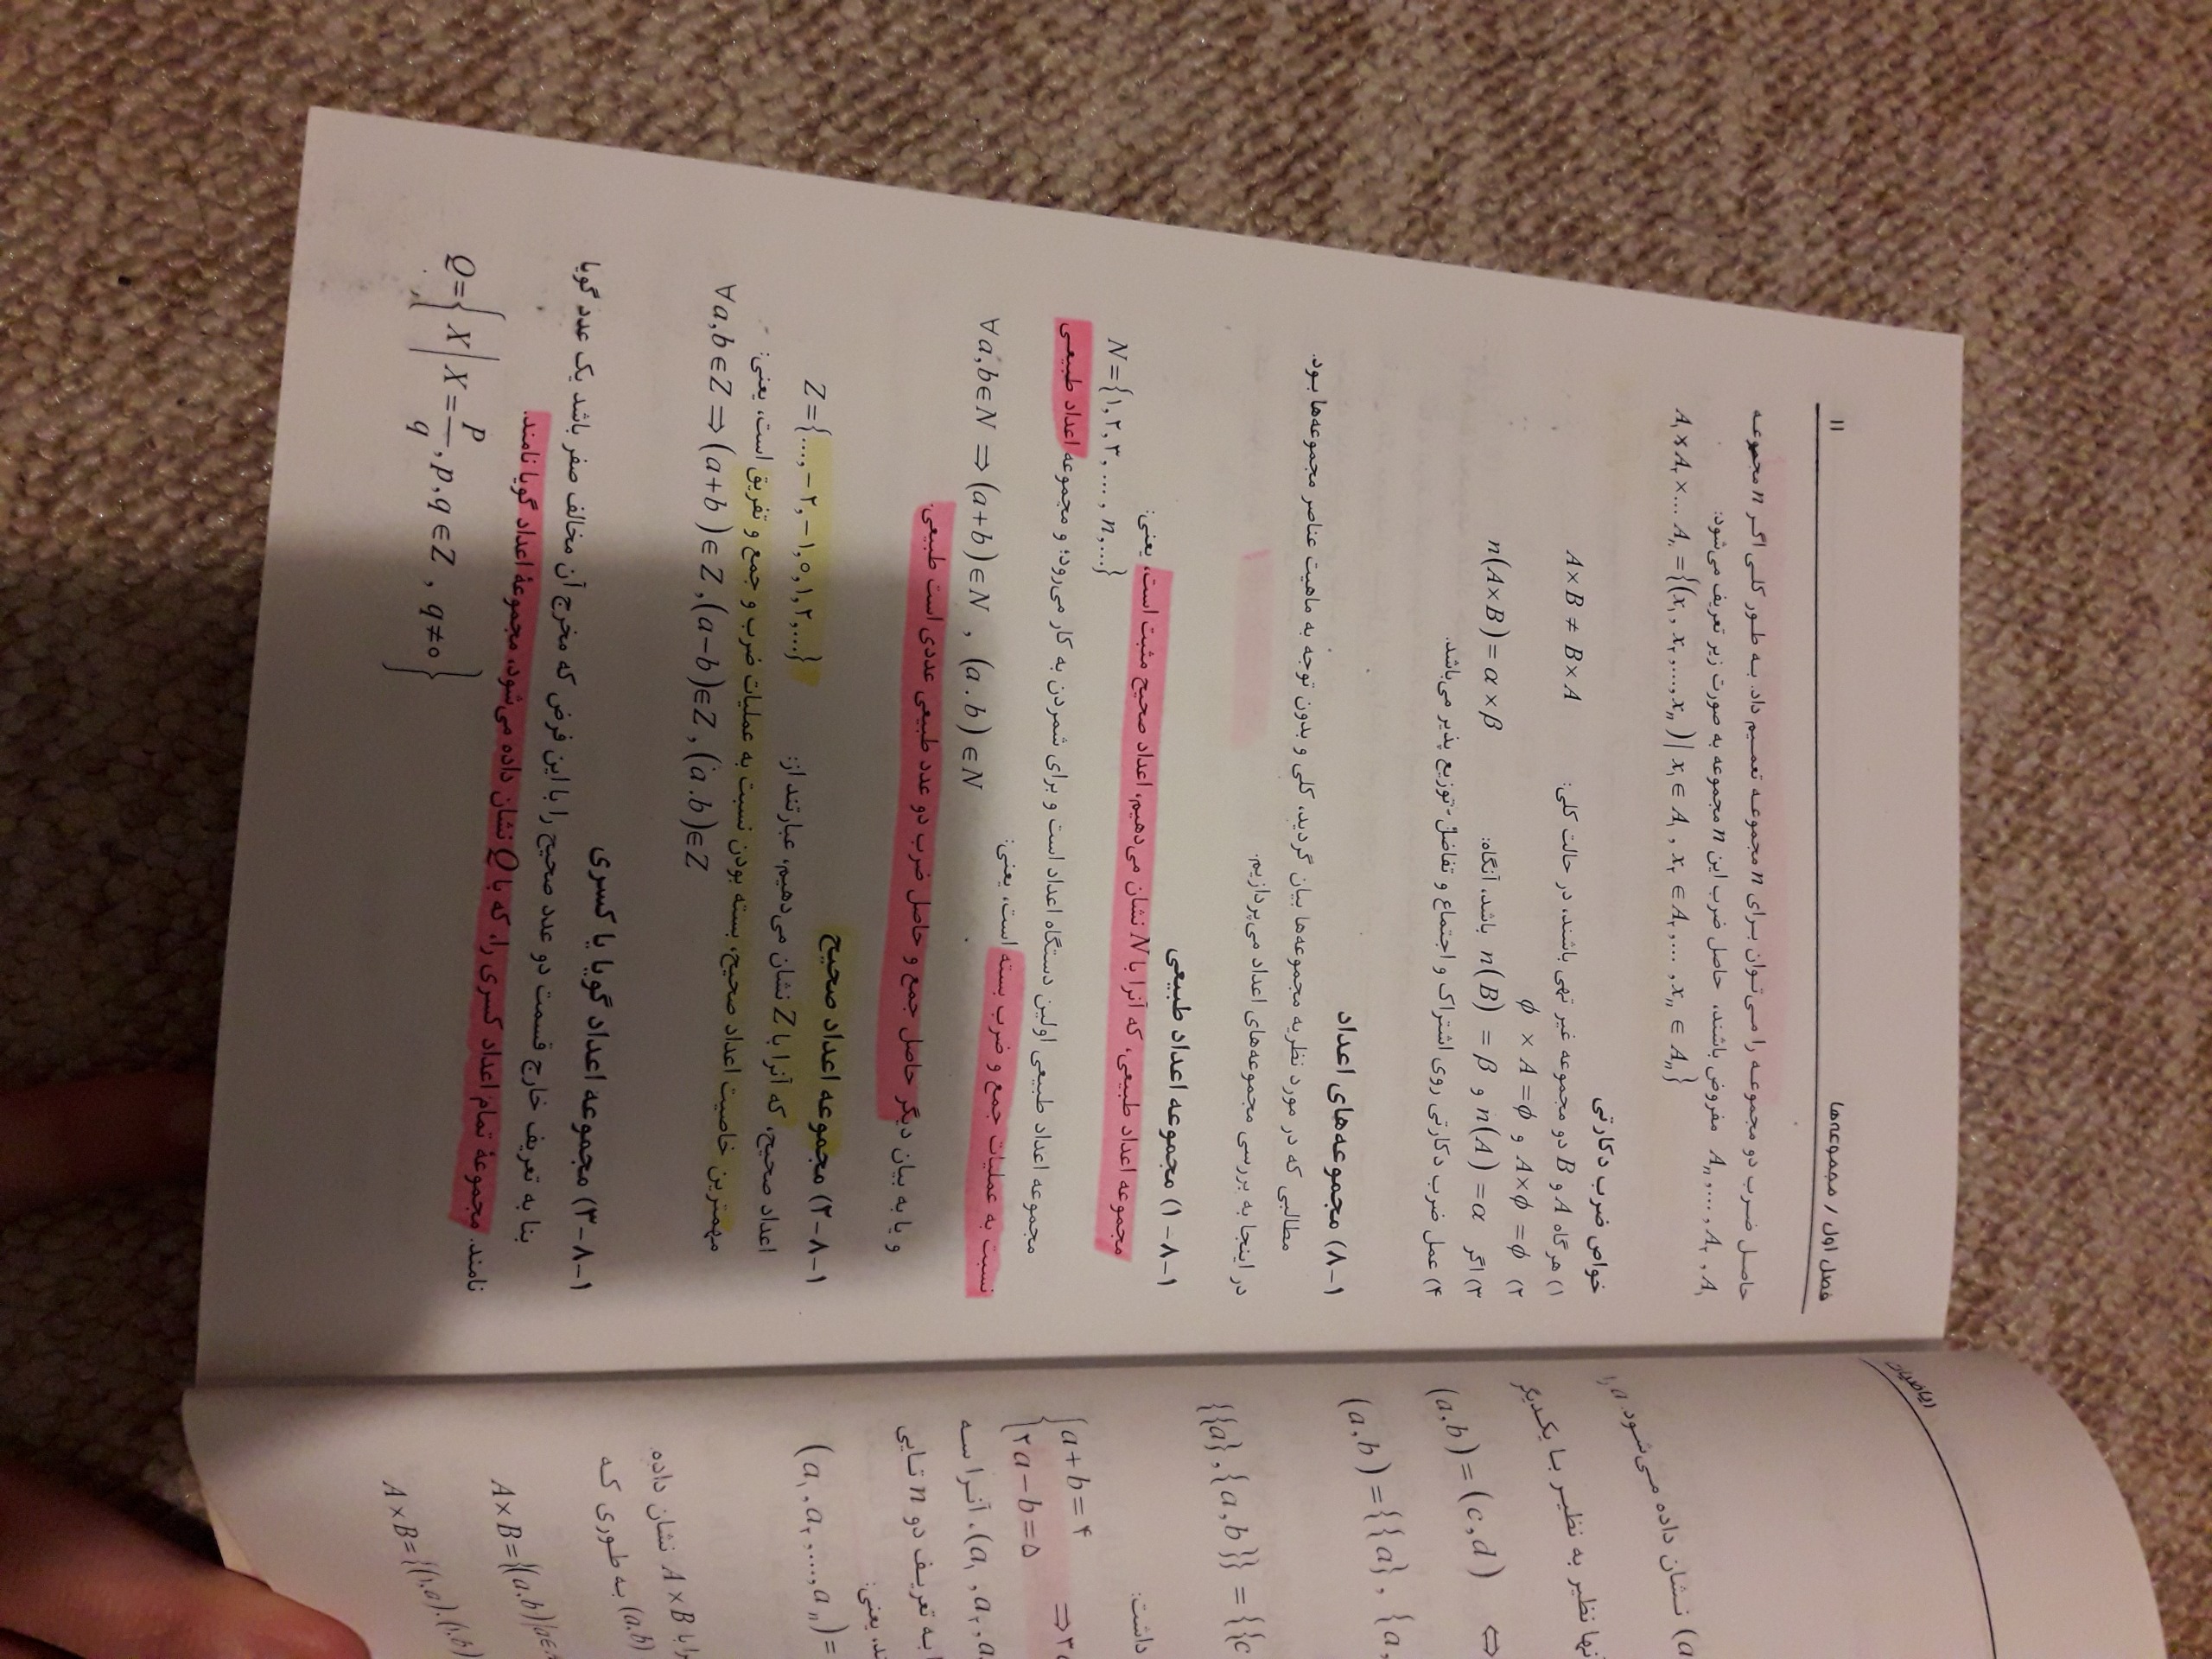 فصل اول / مجموعه‌ها ۱۱
حاصل ضرب دو مجموعه را می‌توان برای n مجموعه تعمیم داد. به طور کلی اگر n مجموعه
A₁ , A₂ , ... , Aₙ مفروض باشند، حاصل ضرب این n مجموعه به صورت زیر تعریف می‌شود:
A₁×A₂×... Aₙ ={(x₁ , x₂ ,...., xₙ) | x₁ ∈ A₁ , x₂ ∈ A₂ ,... , xₙ ∈ Aₙ}
خواص ضرب دکارتی
۱) هرگاه A و B دو مجموعه غیر تهی باشند، در حالت کلی: A×B ≠ B×A
۲) A×ϕ =ϕ و ϕ ×A =ϕ
۳) اگر n(A) =α و n(B) = β باشد، آنگاه: n(A×B) = α×β
۴) عمل ضرب دکارتی روی اشتراک و اجتماع و تفاضل توزیع پذیر می‌باشد.
۱-۸) مجموعه‌های اعداد
مطالبی که در مورد نظریه مجموعه‌ها بیان گردید، کلی و بدون توجه به ماهیت عناصر مجموعه‌ها بود.
در اینجا به بررسی مجموعه‌های اعداد می‌پردازیم.
۱-۸-۱) مجموعه اعداد طبیعی
مجموعه اعداد طبیعی، که آنرا با N نشان می‌دهیم، اعداد صحیح مثبت است، یعنی:
N ={۱,۲,۳,..., n,...}
مجموعه اعداد طبیعی اولین دستگاه اعداد است و برای شمردن به کار می‌رود؛ و مجموعه اعداد طبیعی
نسبت به عملیات جمع و ضرب بسته است، یعنی:
∀a,b∈N ⇒(a+b)∈N , (a.b)∈N
و یا به بیان دیگر حاصل جمع و حاصل ضرب دو عدد طبیعی عددی است طبیعی.
۱-۸-۲) مجموعه اعداد صحیح
اعداد صحیح، که آنرا با Z نشان می‌دهیم، عبارتند از: Z={...,-۲,-۱,۰,۱,۲,...}
مهمترین خاصیت اعداد صحیح، بسته بودن نسبت به عملیات ضرب و جمع و تفریق است، یعنی:
∀a,b∈Z ⇒(a+b)∈Z,(a-b)∈Z,(a.b)∈Z
۱-۸-۳) مجموعه اعداد گویا یا کسری
بنا به تعریف خارج قسمت دو عدد صحیح را با این فرض که مخرج آن مخالف صفر باشد یک عدد گویا
نامند. مجموعهٔ تمام اعداد کسری را، که با Q نشان داده می‌شود، مجموعهٔ اعداد گویا نامند.
Q={X | X = p/q , p,q∈Z , q≠۰}
ریاضیات
(a نشان داده می‌شود. a را
نظیر به نظیر با یکدیگر
(a,b) = (c,d) ⇔
(a,b) = {{a} , {a,
{{a},{a,b}} = {{c
داشت:
{a+b=۴
۲a-b=۵ ⇒۳
(a₁ , a₂ , a . آنرا سه
به تعریف دو n تایی
یعنی:
(a₁ , a₂ ,...., aₙ) =
را با A×B نشان داده
(a,b) به طوری که
A×B={(a,b)|a∈
A×B={(۱,a),(۱,b)